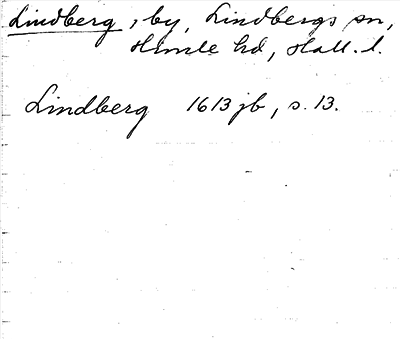 Lindberg, by, Lindbergs sn,
Himle hd, Hall. l.
Lindberg 1613 jb, s. 13.